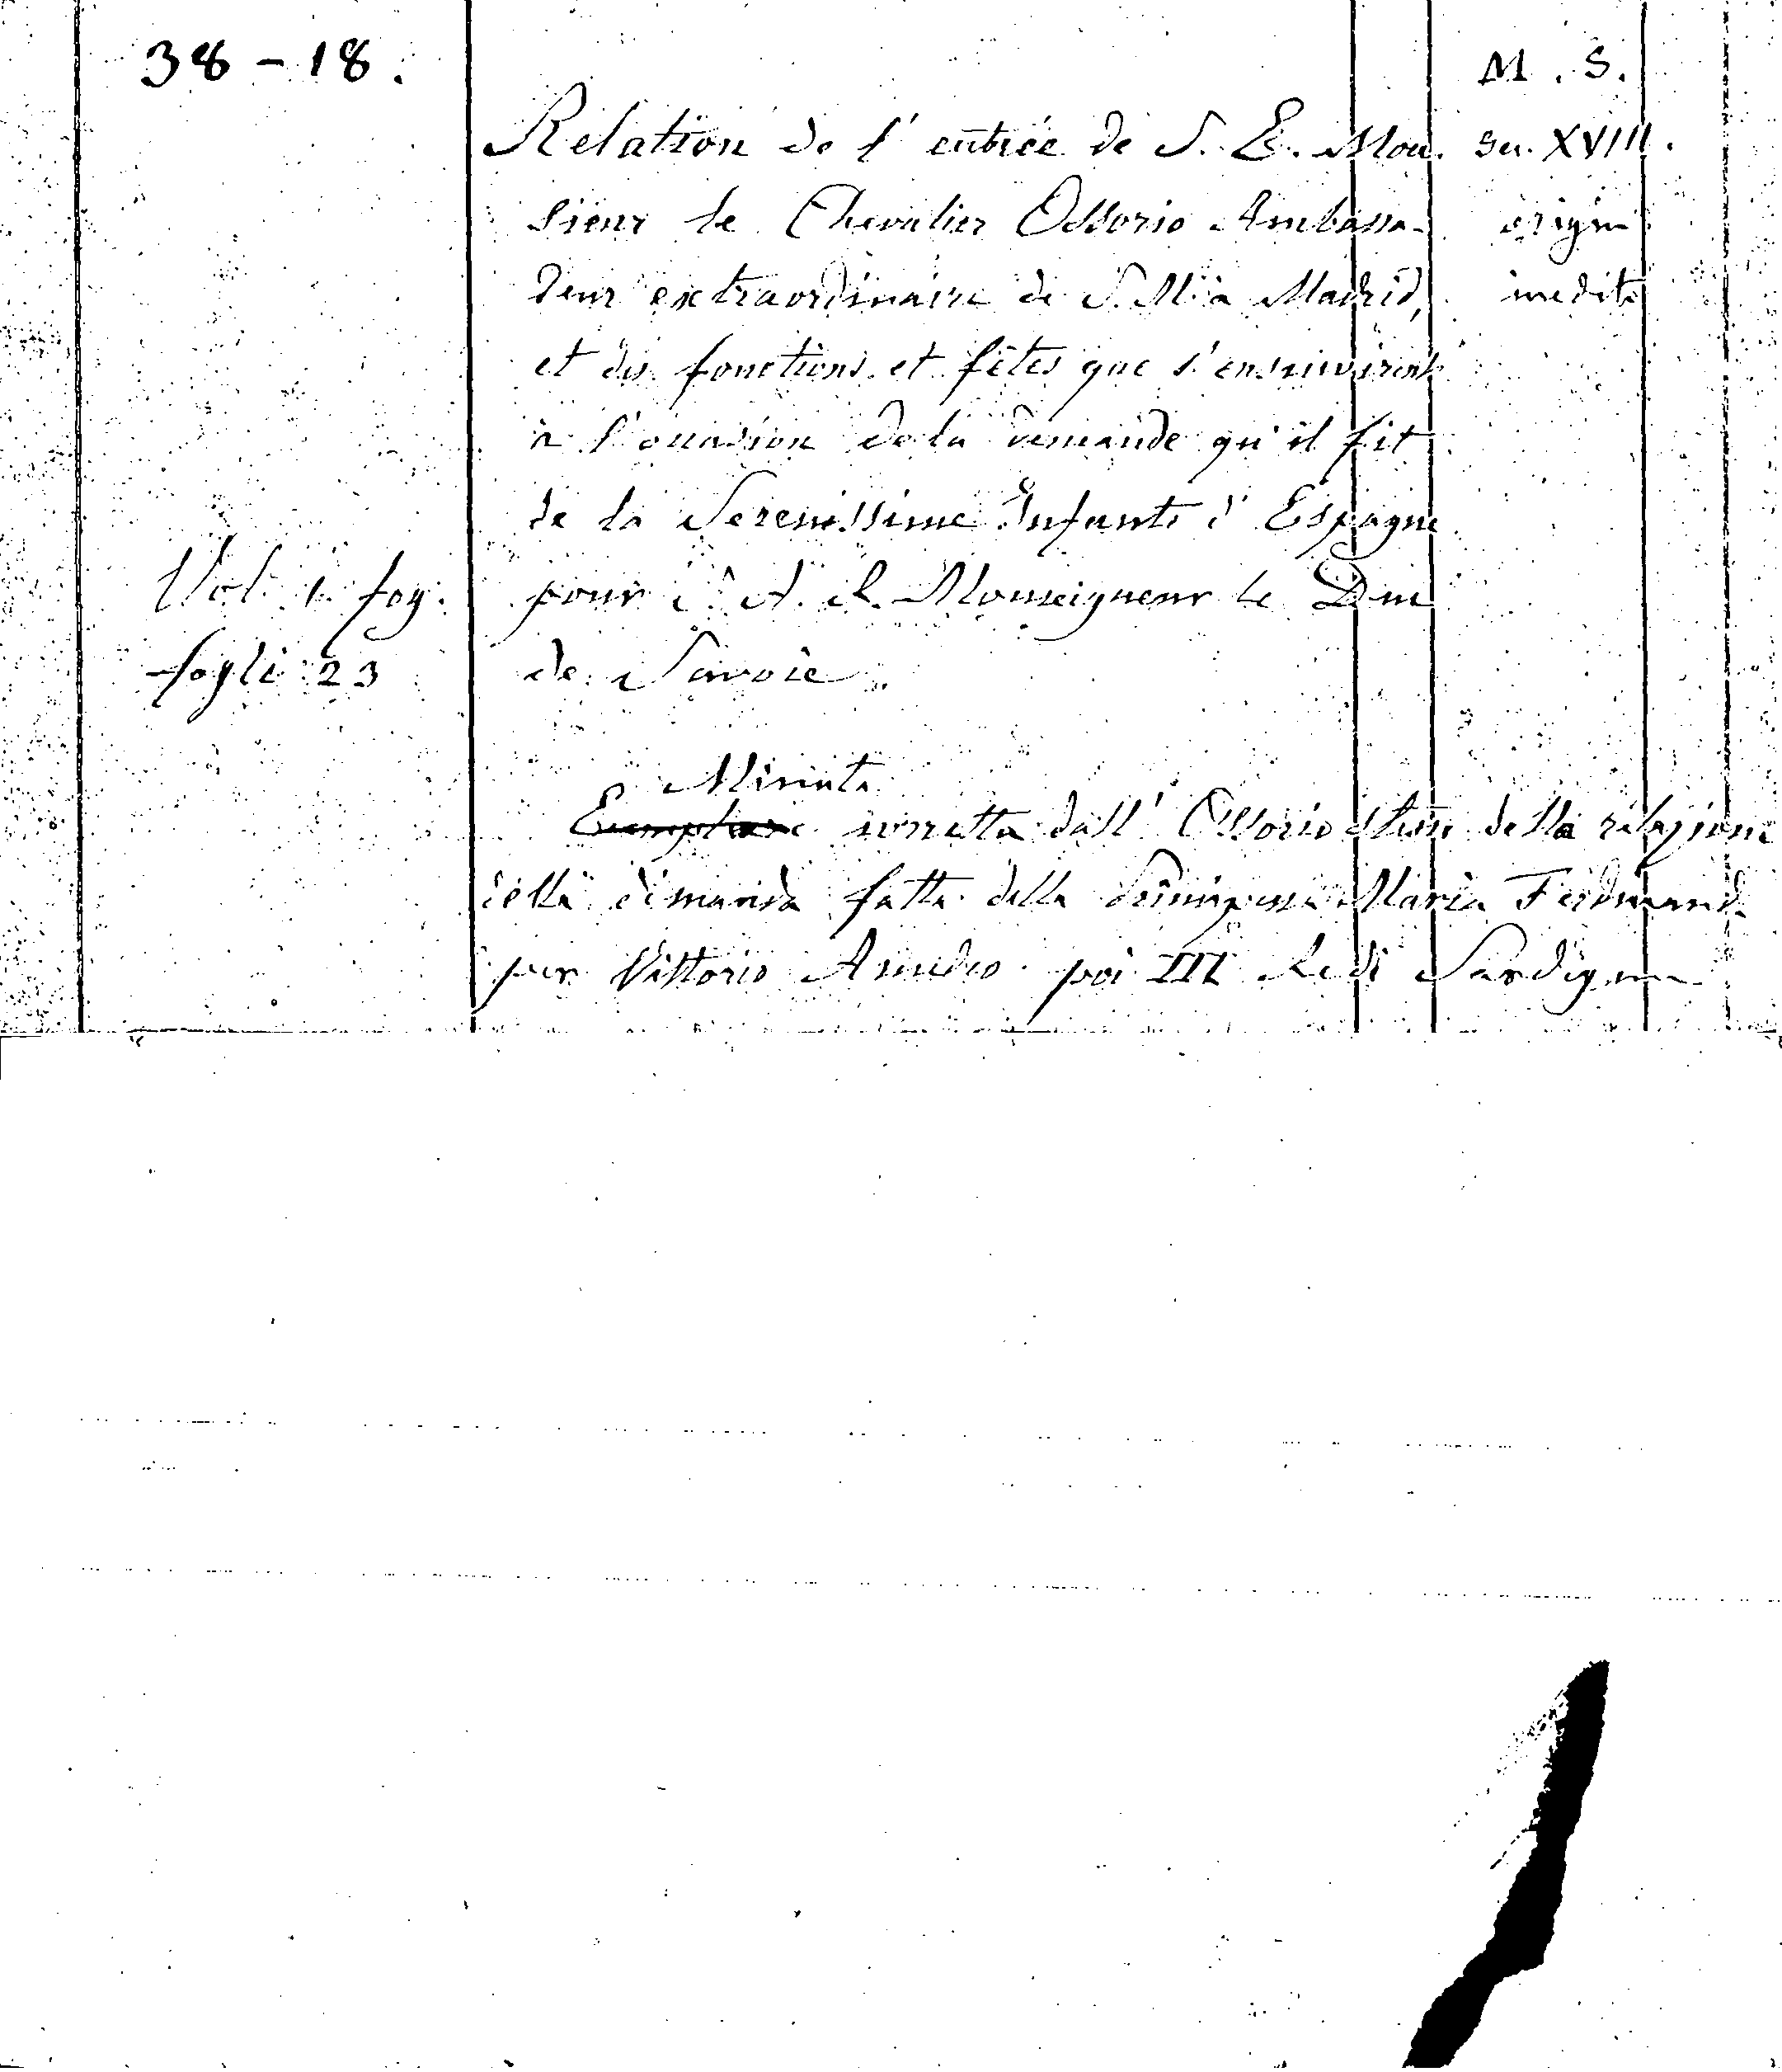 38-18.
M. S.
Relation de l'entrée de S. E. Mon-
sec. XVIII.
sieur le Chevalier Ossorio Ambassa-
origin
deur extraordinaire de S. M. à Madrid,
inedito
et des fonctions et fêtes que s'ensuivirent
à l'occasion de la demande qu'il fit
de la Serenissime Infante d'Espagne
Vol. 1. fog.
pour S. A. R. Monseigneur le Duc
fogli 23
de Savoie.
Minuta
Esemplare corretta dall'Ossorio della relazione
della dimanda fatta della Principessa Maria Ferdinand.
per Vittorio Amedeo poi III Re di Sardigna